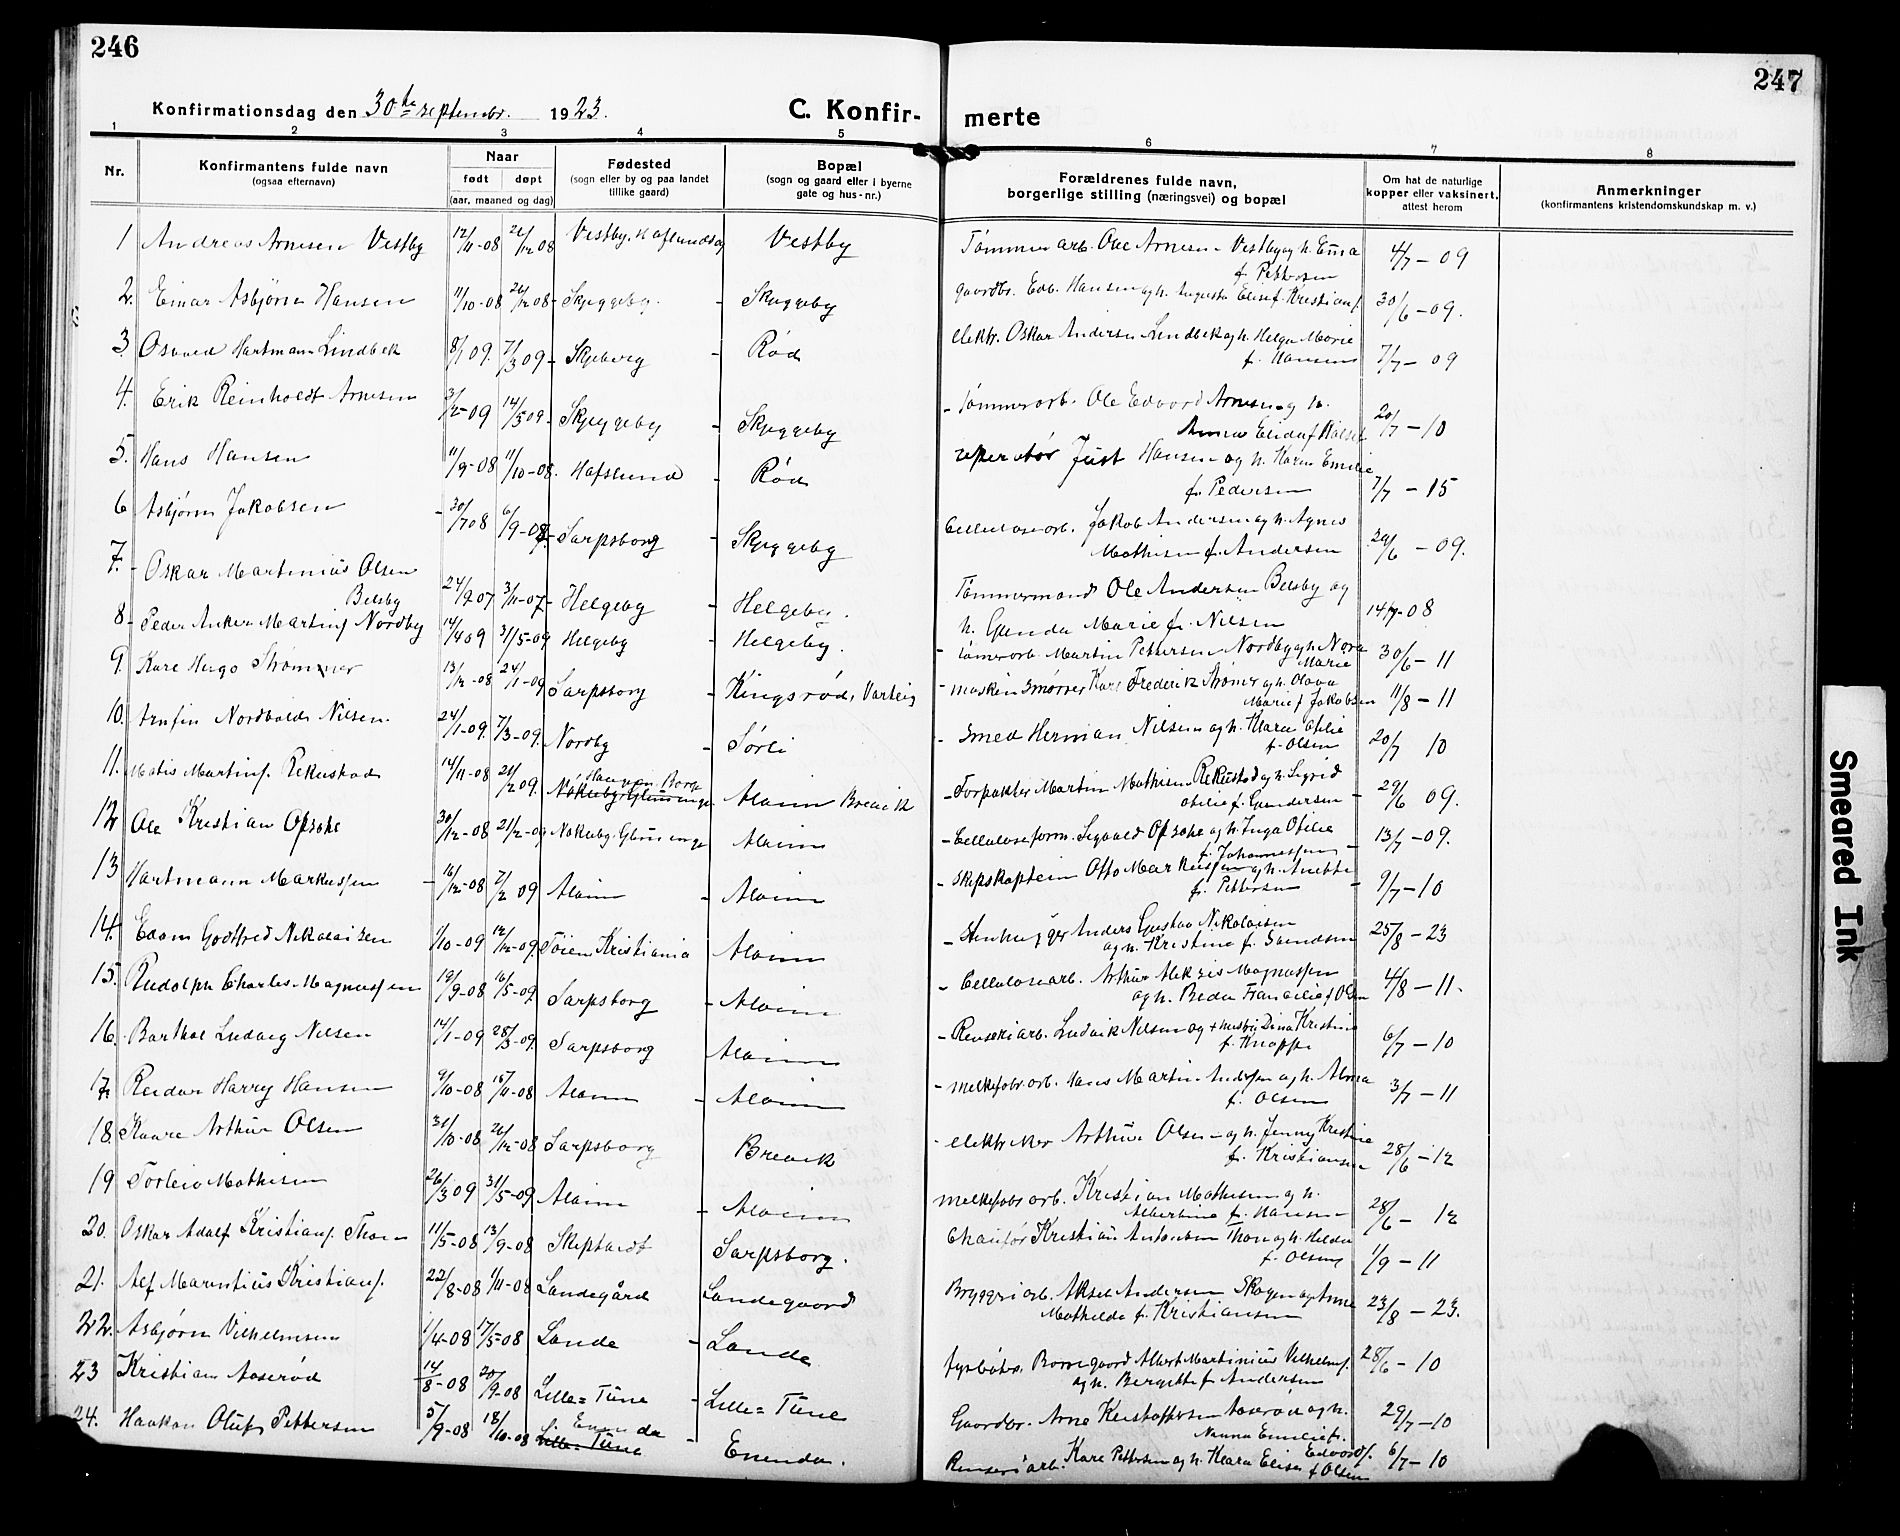 246
247
Konfirmationsdag den 30te septembr. 1923.
C. Konfir- merte
1 2 3 4 5 6 7 8
Nr.
Konfirmantens fulde navn
(ogsaa efternavn)
Naar
født døpt
(aar, maaned og dag)
Fødested
(sogn eller by og paa landet
tillike gaard)
Bopæl
(sogn og gaard eller i byerne
gate og hus-nr.)
Forældrenes fulde navn,
borgerlige stilling (næringsvei) og bopæl
Om hat de naturlige
kopper eller vaksinert,
attest herom
Anmerkninger
(konfirmantens kristendomskundskap m. v.)
1 Andreas Arnesen Vestby 12/11-08 26/12 08 Vestby, Hafslundsog Vestby Tømmerarb. Ole Arnesen Vestby og h. Ema 4/7-09
f. Pettersen
2. Einar Asbjørn Hansen 11/10-08 26/12 08 - Skjeggeby - Skjeggeby gaardbr. Edv. Hansen og h. Augusta Elise f. Kristians. 30/6-09.
3. Osvald Hartman Lindbek 8/1 09. 7/3 09 - Skjeberg - Rød elektr. Oskar Andersen Lindbek og h. Helga Marie
f. Hansen 7/7-09
4. Erik Reinholdt Arnesen 3/2-09 14/3 09. Skjeggeby - Skjeggeby - Tømmerarb. Ole Edvard Arnesen og h.
Anna Elida f. 20/7-10
5. Hans Hansen 11/9-08 11/10-08. Hafslund - Rød reperatør Just Hansen og h. Karen Emilie
f. Pedersen 7/7-15
6 Asbjørn Jakobsen - 30/7 08 6/9-08 Sarpsborg - Skjeggeby Cellulosearb. Jakob Andersen og h. Agnes
Mathisen f. Andersen 29/6-09.
7. - Oskar Martinius Olsen
Belsby 24/9 07 3/11-07 - Helgeby - Helgeby. Tømmermand Ole Andersen Belsby og
h. Gunda Marie f. Nilsen 14/7-08
8 - Peder Anker Martins. Nordby 14/4 09 31/5-09 Helgeby - Helgeby. - Tømerarb. Martin Pettersen Nordby og h. Nora
Marie 30/6-11
9. Kare Hugo Strømmer 13/12-08 24/1-09 Sarpsborg - Kingsrød, Varteig - maskinsmører Karl Frederik Strømer og h. Olava
Marie f. Jakobsen 11/8-11
10. Arnfin Nordbald Nilsen. 24/1-09. 7/3-09. Nordby - Sørli - Smed Herman Nilsen og h. Klara Otilie
f. Olsen 20/7 10
11. Matis Martins. Rekustad 14/11-08 21/2 09. Hannevin Borge
Nakkeby Glemmenge Alvim Brevik - Forpakter Martin Mathisen Rekustad og h. Sigrid
Otilie f. Gundersen - 29/6 09.
12 Ole Kristian Opsahl 30/12-08 21/2-09 Nakkeby. Glemmenge Alvim - Celluloseform. Sigvald Opsahl og h. Inga Otilie
f. Johannessen - 13/7-09.
13 Hartmann Markussen - 16/12-08 7/2 09 Alvim - Alvim - Skipskaptein Otto Markussen og h. Anette
f. Pettersen - 9/7-10
14. Edvin Godtfred Nikolaisen 1/10-09 12/12-09. Tøien Kristiania Alvim - Stenhugger Anders Gustav Nikolaisen
og h. Kristine f. Svendsen 25/8-23
15. Rudolph Charles Magnussen 19/9-08 16/5-09. Sarpsborg - Alvim - Cellulosearb. Arthur Aleksis Magnussen
og h. Beda Francilie f. Olsen 4/8-11.
16. Barthol Ludvig Nilsen 14/1-09 28/3-09. Sarpsborg Alvim - Renseriarb. Ludvik Nilsen og + hustru Dina Kristine
f. Knappe 6/7-10
17. Reidar Harry Hansen 9/10-08 15/11-08 Alvim - Alvim - melkefabr. arb. Hans Martin Andersen og h. Alma
f. Olsen 3/7-11
18. Kaare Arthur Olsen 31/10-08 26/12-08 Sarpsborg Brevik - elektriker Arthur Olsen og h. Jenny Kristine
f. Kristiansen 28/6-12
19 Torleiv Mathisen 26/3 09 31/5-09 Alvim - Alvim melkefabr arb. Kristian Mathisen og h.
Albertine f. Hansen 28/6-12
20. Oskar Adolf Kristians. Thon 11/5-08 13/9-08 Skiptvedt Sarpsborg. Chauffør Kristian Antonsen Thon og h. Helda
f. Olsen 1/9-11
21. Alf Marentius Kristians. 22/8-08 1/11-08 Landegård Landegaard Bryggeriarb. Aksel Andersen Skogen og Anne
Mathilde f. Kristiansen 23/8-23.
22. Asbjørn Vilhelmsen 1/4-08 17/5-08 Lande - Lande fyrbøter Borregaard Albert Martinius Vilhelms.
og h. Bergitte f. Andersen 28/6-10
23 Kristian Aaserød 14/8-08 20/9-08 Lille=Tune - Lille=Tune Gaardbr. Arne Kristoffersen Aaserød og h.
Nanna Emilie f.
Edvards. 29/7-10
24. Haakon Oluf Pettersen 5/9-08 18/10-08 Enenda
Lille=Tune - Enenda. Renseriarb. Kare Pettersen og h. Klara Elise
f. Olsen 6/7-10
Smeared Ink